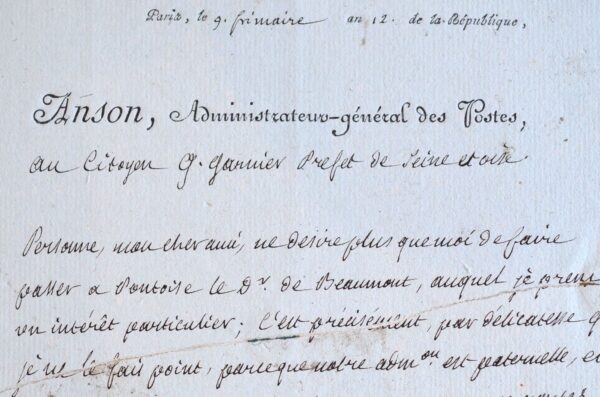 Paris, le 9. frimaire an 12. de la République,
Anson, Administrateur-général des Postes,
au Citoyen G. garnier Prefet de Seine et oise
Personne, mon cher ami, ne desire plus que moi de faire
passer a Pontoise le Dr. de Beaumont, auquel je prens
un intérêt particulier; C'est précisement, par délicatesse q
je ne le fais point, parceque notre admon est paternelle, et